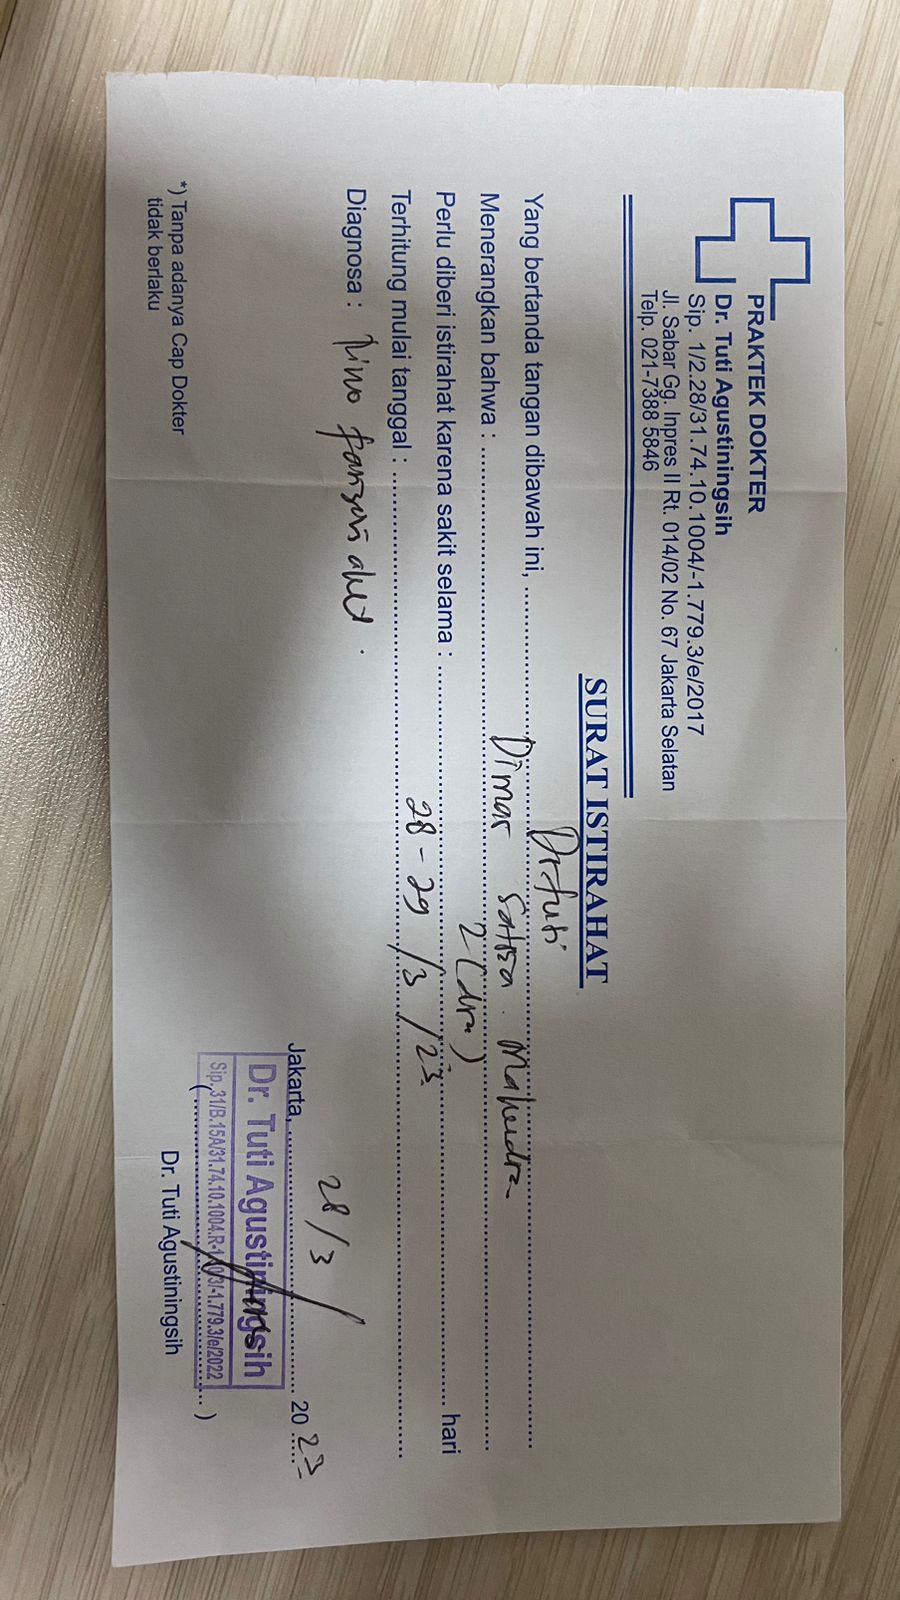 PRAKTEK DOKTER
Dr. Tuti Agustiningsih
Sip. 1/2.28/31.74.10.1004/-1.779.3/e/2017
Jl. Sabar Gg. Inpres II Rt. 014/02 No. 67 Jakarta Selatan
Telp. 021-7388 5846
SURAT ISTIRAHAT
Yang bertanda tangan dibawah ini, Dr tuti
Menerangkan bahwa : Dimas Satria Mahendra
Perlu diberi istirahat karena sakit selama : 2 (dua) hari
Terhitung mulai tanggal : 28 - 29 / 3 / 23
Diagnosa : Rino faringitis akut
Jakarta, 28/3 2023
Dr. Tuti Agustiningsih
Sip.31/B.15A/31.74.10.1004.R-1 /3/-1.779.3/e/2022
( )
Dr. Tuti Agustiningsih
*) Tanpa adanya Cap Dokter
tidak berlaku